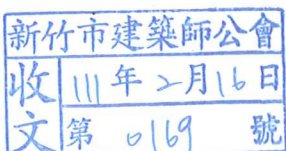 新竹市建築師公會
收文
111年2月16日
第0169號